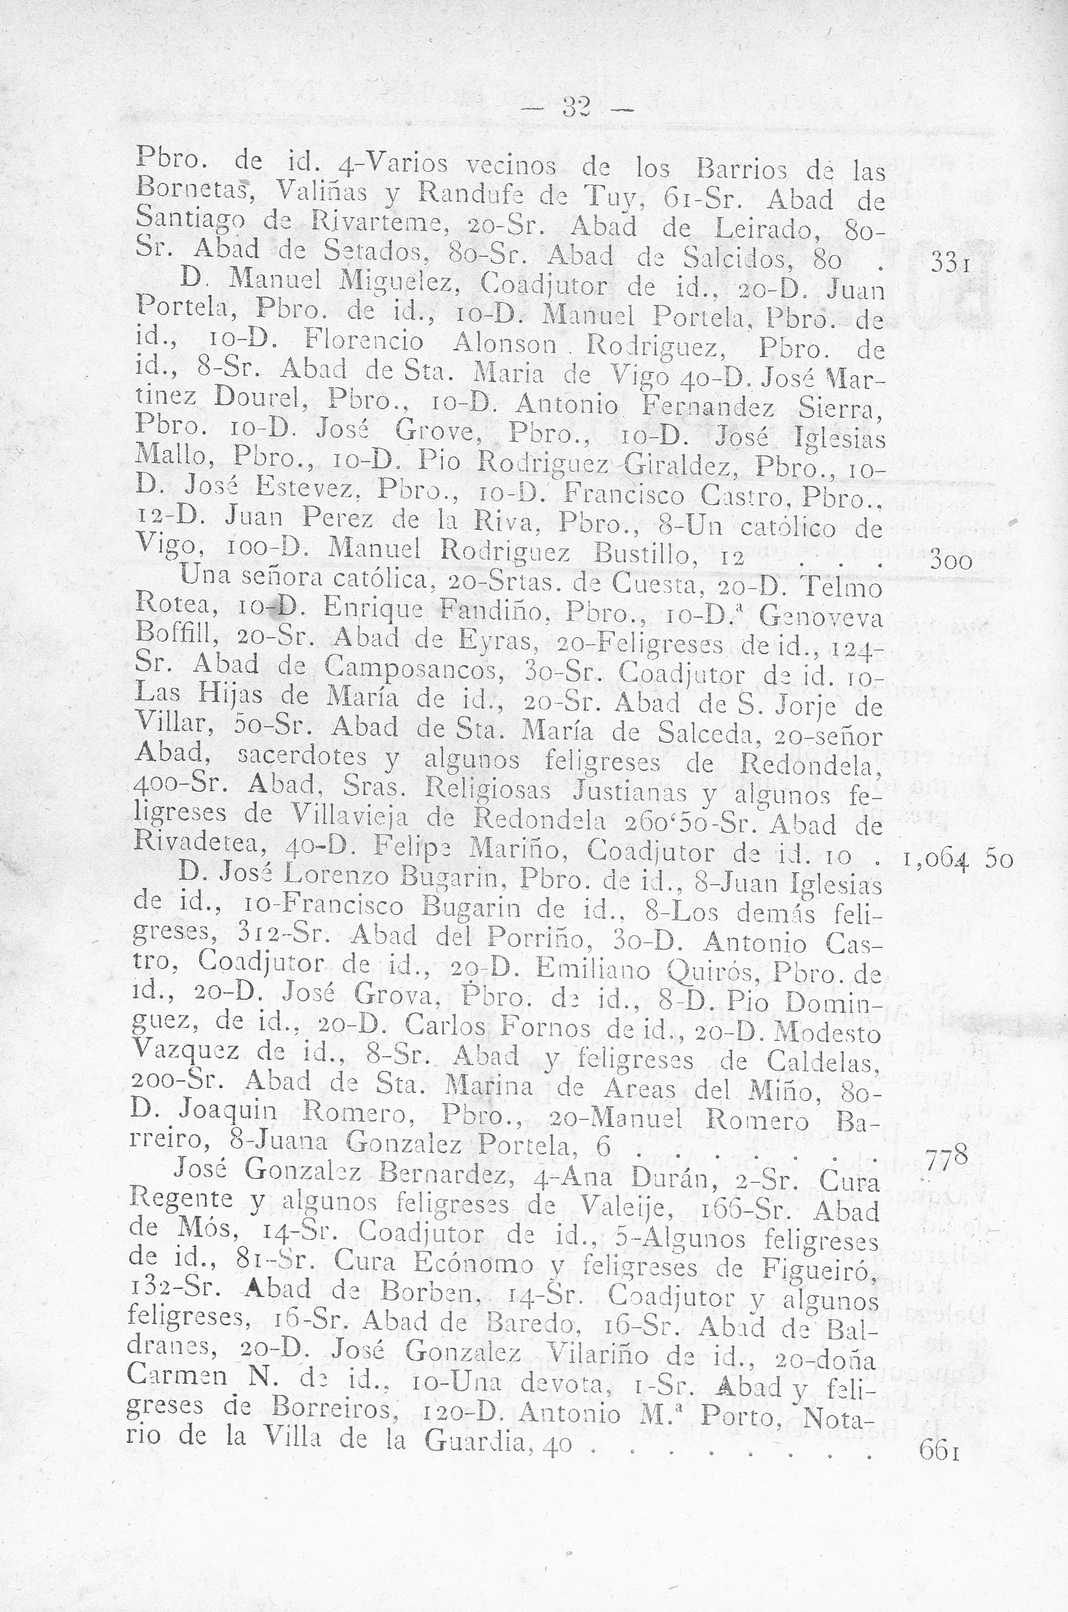 — 32 —
Pbro. de id. 4-Varios vecinos de los Barrios de las
Bornetas, Valiñas y Randufe de Tuy, 61-Sr. Abad de
Santiago de Rivarteme, 20-Sr. Abad de Leirado, 80-
Sr. Abad de Setados, 80-Sr. Abad de Salcidos, 80 . 331
D. Manuel Miguelez, Coadjutor de id., 20-D. Juan
Portela, Pbro. de id., 10-D. Manuel Portela, Pbro. de
id., 10-D. Florencio Alonson . Rodriguez, Pbro. de
id., 8-Sr. Abad de Sta. Maria de Vigo 40-D. José Mar-
tinez Dourel, Pbro., 10-D. Antonio Fernandez Sierra,
Pbro. 10-D. José Grove, Pbro., 10-D. José Iglesias
Mallo, Pbro., 10-D. Pio Rodriguez Giraldez, Pbro., 10-
D. José Estevez, Pbro., 10-D. Francisco Castro, Pbro.,
12-D. Juan Perez de la Riva, Pbro., 8-Un católico de
Vigo, 100-D. Manuel Rodriguez Bustillo, 12 . . . 300
Una señora católica, 20-Srtas. de Cuesta, 20-D. Telmo
Rotea, 10-D. Enrique Fandiño, Pbro., 10-D.ª Genoveva
Boffill, 20-Sr. Abad de Eyras, 20-Feligreses de id., 124-
Sr. Abad de Camposancos, 30-Sr. Coadjutor de id. 10-
Las Hijas de María de id., 20-Sr. Abad de S. Jorje de
Villar, 50-Sr. Abad de Sta. María de Salceda, 20-señor
Abad, sacerdotes y algunos feligreses de Redondela,
400-Sr. Abad, Sras. Religiosas Justianas y algunos fe-
ligreses de Villavieja de Redondela 260‘50-Sr. Abad de
Rivadetea, 40-D. Felipe Mariño, Coadjutor de id. 10 . 1,064 50
D. José Lorenzo Bugarin, Pbro. de id., 8-Juan Iglesias
de id., 10-Francisco Bugarin de id., 8-Los demás feli-
greses, 312-Sr. Abad del Porriño, 30-D. Antonio Cas-
tro, Coadjutor de id., 20-D. Emiliano Quirós, Pbro. de
id., 20-D. José Grova, Pbro. de id., 8-D. Pio Domin-
guez, de id., 20-D. Carlos Fornos de id., 20-D. Modesto
Vazquez de id., 8-Sr. Abad y feligreses de Caldelas,
200-Sr. Abad de Sta. Marina de Areas del Miño, 80-
D. Joaquin Romero, Pbro., 20-Manuel Romero Ba-
rreiro, 8-Juana Gonzalez Portela, 6 . . . . . . . 778
José Gonzalez Bernardez, 4-Ana Durán, 2-Sr. Cura
Regente y algunos feligreses de Valeije, 166-Sr. Abad
de Mós, 14-Sr. Coadjutor de id., 5-Algunos feligreses
de id., 81-Sr. Cura Ecónomo y feligreses de Figueiró,
132-Sr. Abad de Borben, 14-Sr. Coadjutor y algunos
feligreses, 16-Sr. Abad de Baredo, 16-Sr. Abad de Bal-
dranes, 20-D. José Gonzalez Vilariño de id., 20-doña
Carmen N. de id., 10-Una devota, 1-Sr. Abad y feli-
greses de Borreiros, 120-D. Antonio M.ª Porto, Nota-
rio de la Villa de la Guardia, 40 . . . . . . . . 661